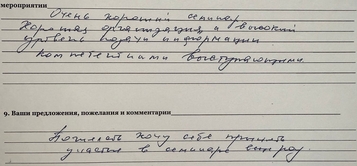 мероприятии
Очень хороший семинар,
Хорошая организация и высокий
уровень подачи информации
компетентными выступающими.
9. Ваши предложения, пожелания и комментарии
хочу себе принять
участие в семинаре